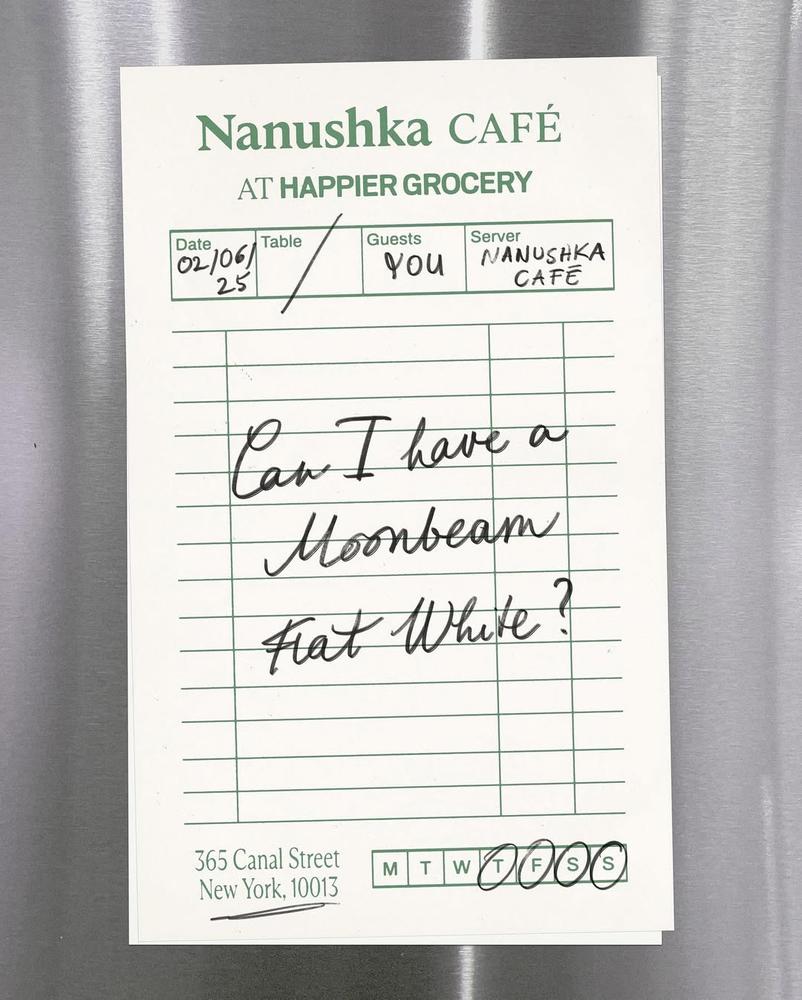 Nanushka CAFÉ
AT HAPPIER GROCERY
Date Table Guests Server
02/06/25 / YOU NANUSHKA CAFÉ
Can I have a
Moonbeam
Flat White?
365 Canal Street
New York, 10013
M T W T F S S